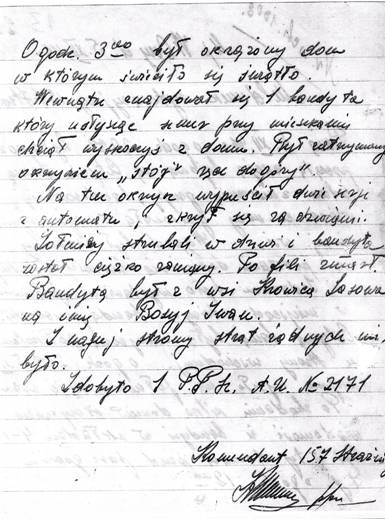 O godz. 3⁰⁰ był okrążony dom
w którym świeciło się światło.
Wewnątrz znajdował się 1 bandyta
który usłysząc szmer przy mieszkaniu
chciał wyskoczyć z domu. Był zatrzymany
okrzykiem „stój" ręce do góry".
Na ten okrzyk wypuścił dwie serji
z automatu, skrył się za drzwiami.
Żołnierzy strzelali w drzwi i bandyta
został ciężko raniony. Po fili zmarł.
Bandyta był z wsi Krowica Lasowa
na imię Bosyj Iwan.
Z naszej strony strat żadnych nie
było.
Zdobyto 1 P.P.Sz. A.U. № 2171
Komendant 157 Strażn